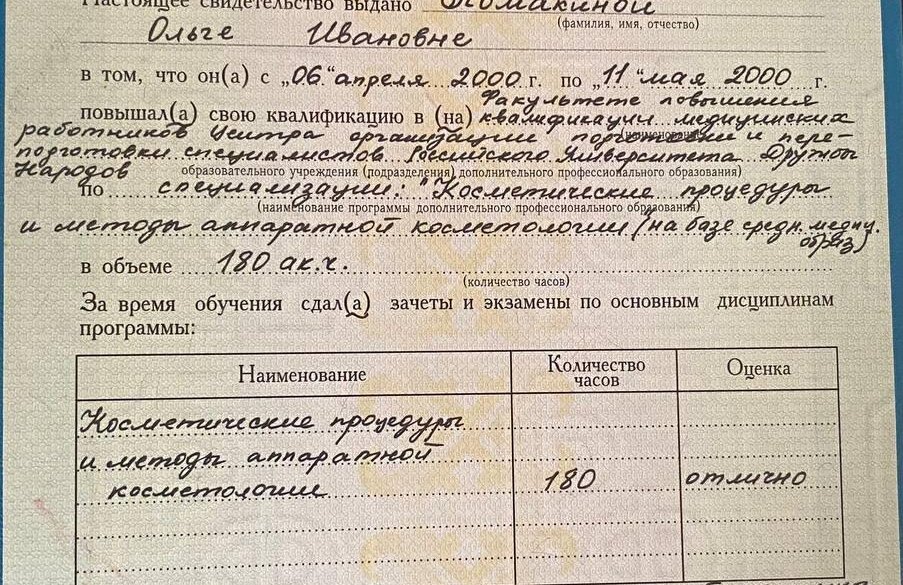 Настоящее свидетельство выдано
(фамилия, имя, отчество)
Ольге Ивановне
в том, что он(а) с „06“ апреля 2000 г. по „11“ мая 2000 г.
повышал(а) свою квалификацию в (на) Факультете повышения
квалификации медицинских
работников Центра организации подготовки и пере-
(наименование
подготовки специалистов Российского Университета Дружбы
Народов
образовательного учреждения (подразделения) дополнительного профессионального образования)
по специализации: "Косметические процедуры
(наименование программы дополнительного профессионального образования)
и методы аппаратной косметологии (на базе средн. медиц.
образ)
в объеме 180 ак.ч.
(количество часов)
За время обучения сдал(а) зачеты и экзамены по основным дисциплинам
программы:
Наименование Количество часов Оценка
Косметические процедуры
и методы аппаратной
косметологии 180 отлично